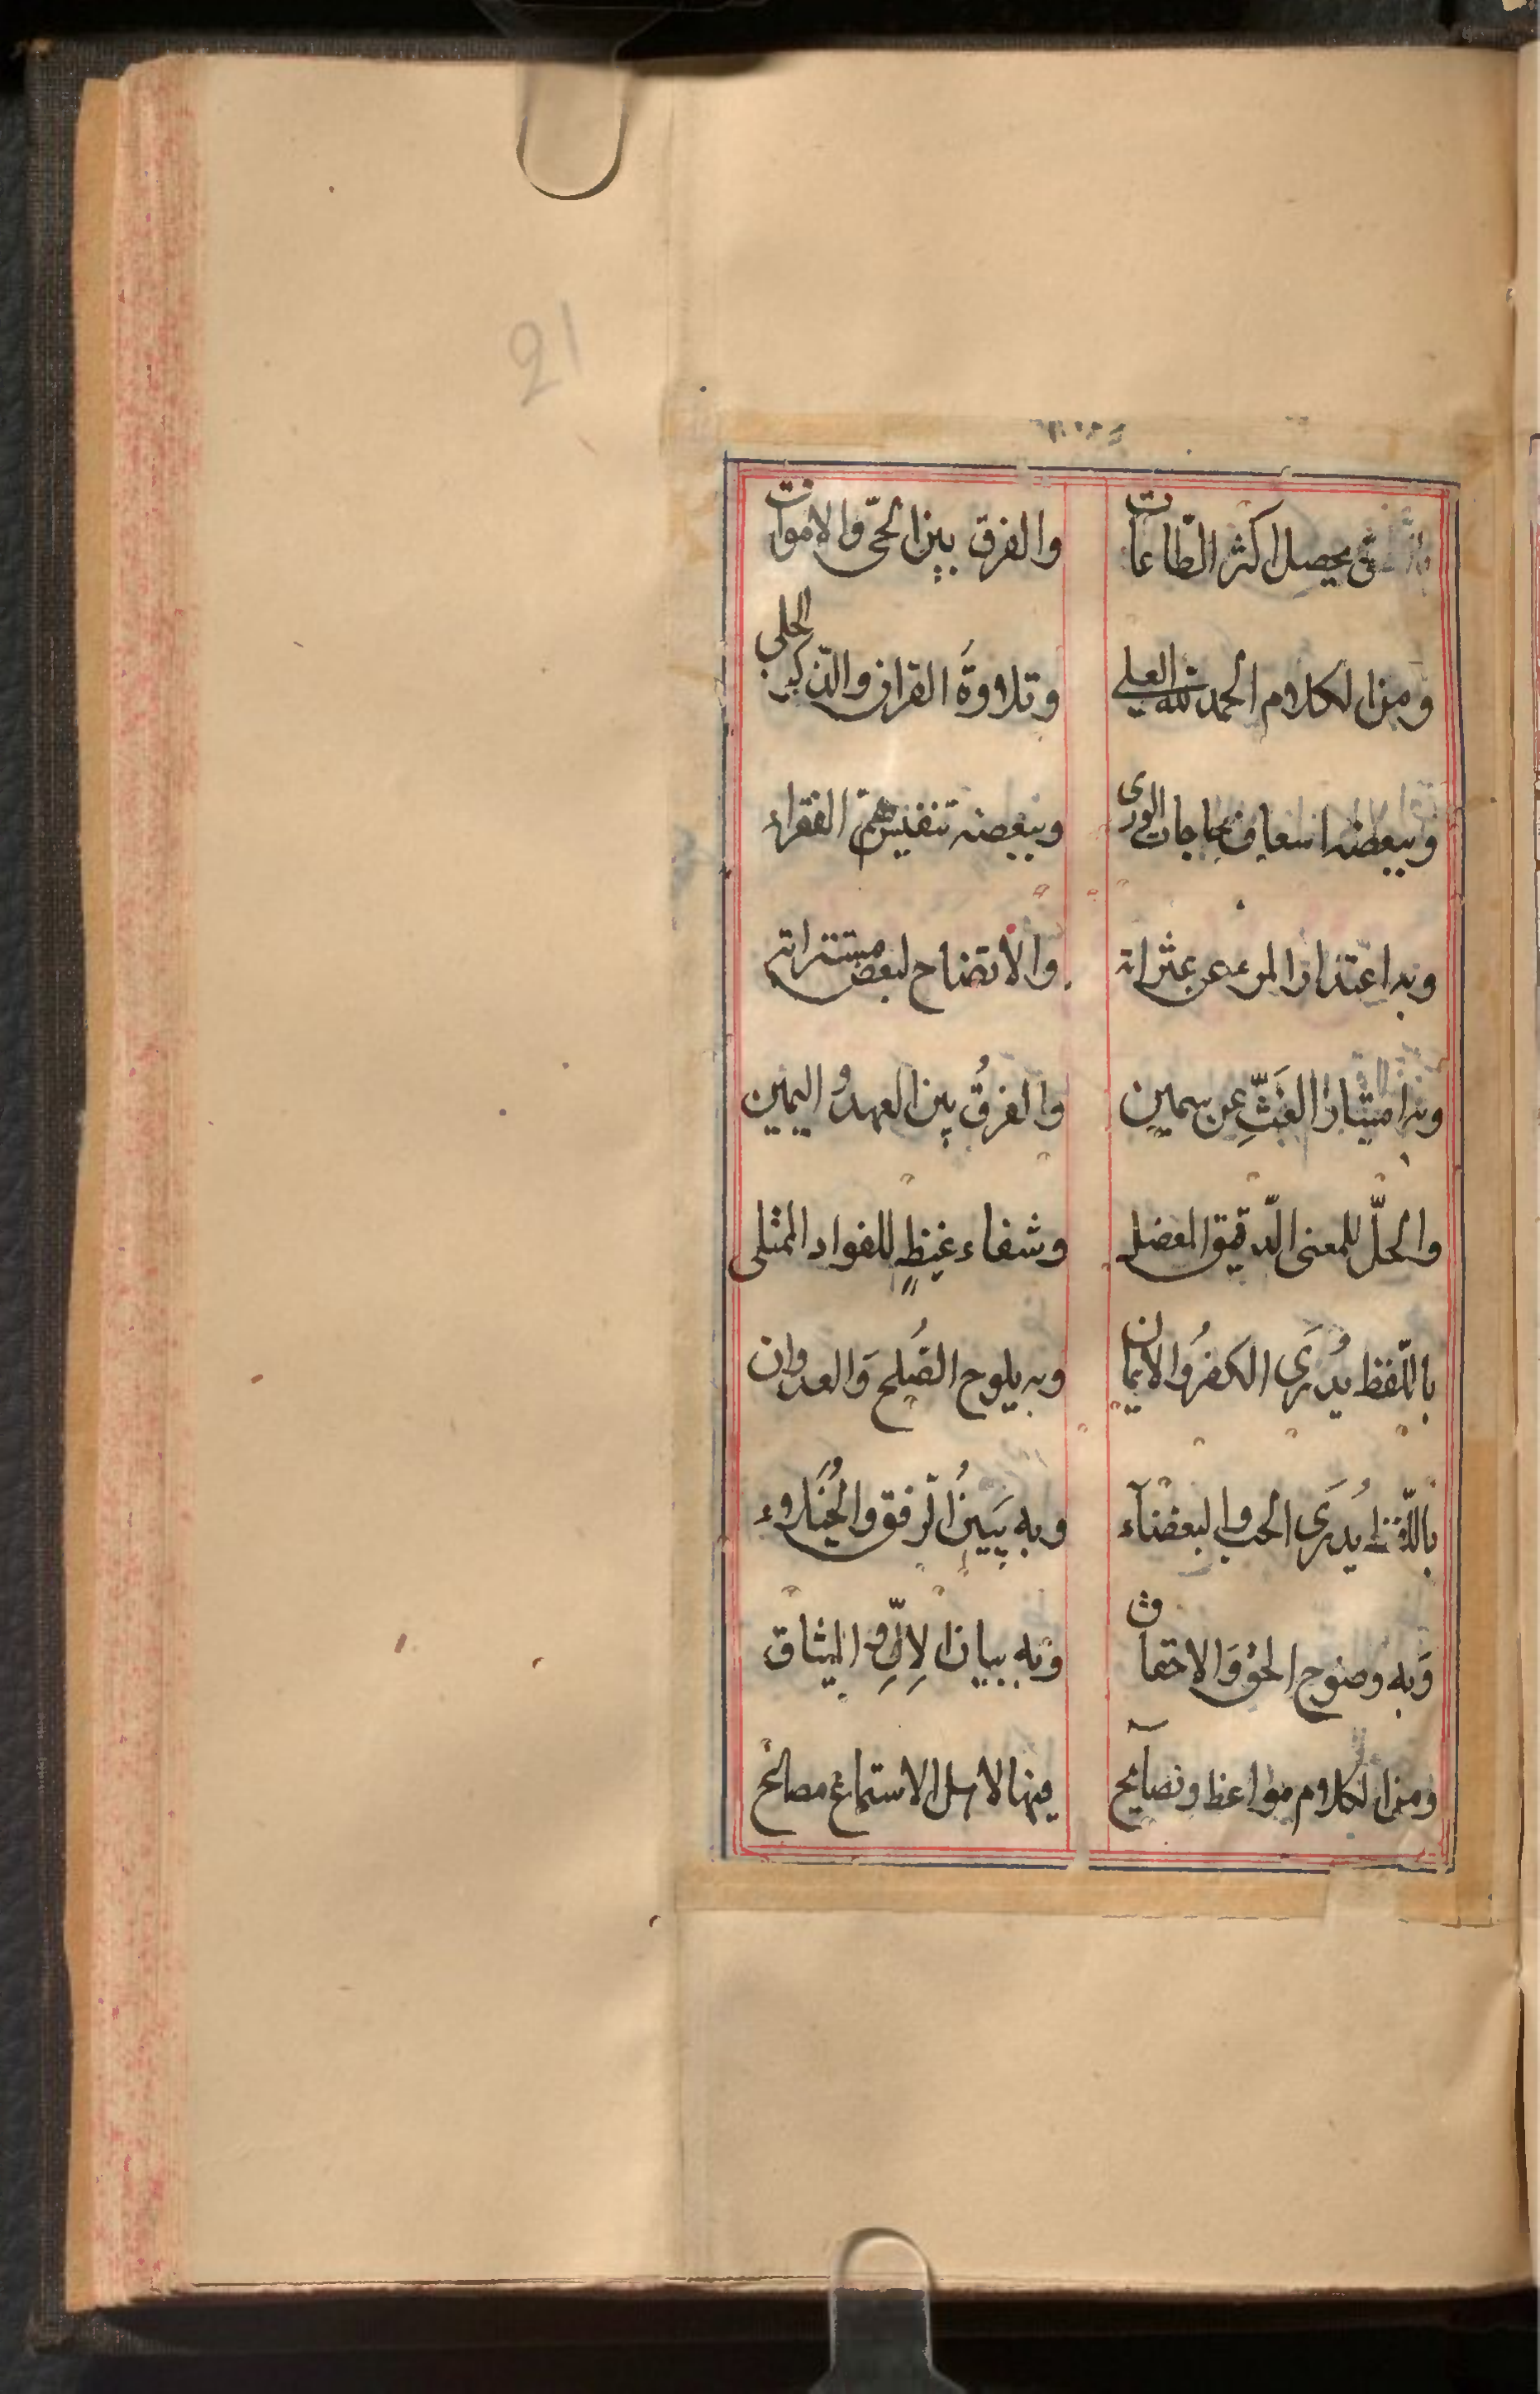 21
يحصل اكثر الطّاعات والفرق بين الحىّ والاموات
ومن الكلام الحمد لله العلي وتلاوةَ القران والذّكر الجلي
وببعضه اسعاف حاجات الورى وببعضه تنفيس همّ الفقراء
وبه اعتذار المرء عن عثراته والاتضاح لبعض مستتراته
وبه امتياز الغَثِّ عن سمين والفرقُ بين العهد واليمين
والحلّ للمعنى الدّقيق المعضل وشفاء غيظٍ للفواد الممتلى
باللّفظ يُدرَى الكفرُ والايمان وبه يلوح الصُلح وَالعدوان
باللّفظ يُدرَى الحب والبغضآء وبه يَبينُ الرفق والخُيَلاء
وَبه وضوح الحق وَالاخفاق وبه بيان الاِلِّ والميثاق
ومن الكلام مواعظ ونصآيح فيها لاهل الاستماع مصالح